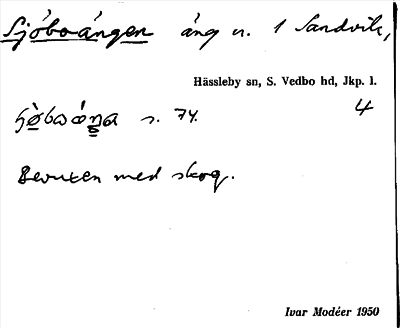 Sjöboängen äng n. 1 Sandvik,
Hässleby sn, S. Vedbo hd, Jkp. l.
s. 74. 4
Bevuxen med skog.
Ivar Modéer 1950